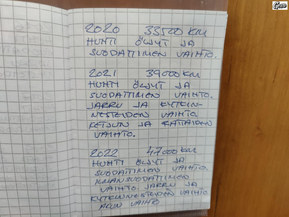 2020 33500 KM
HUHTI ÖLJYT JA
SUODATTIMEN VAIHTO.
2021 39000 KM
HUHTI ÖLJYT JA
SUODATTIMEN VAIHTO.
JARRU JA KYTKIN-
NESTEIDEN VAIHTO.
KETJUN JA RATTAIDEN
VAIHTO.
2022 47000 KM
HUHTI ÖLJYT JA
SUODATTIMEN VAIHTO.
ILMANSUODATTIMEN
VAIHTO. JARRU JA
KYTKINNESTEIDEN VAIHTO.
AKUN VAIHTO